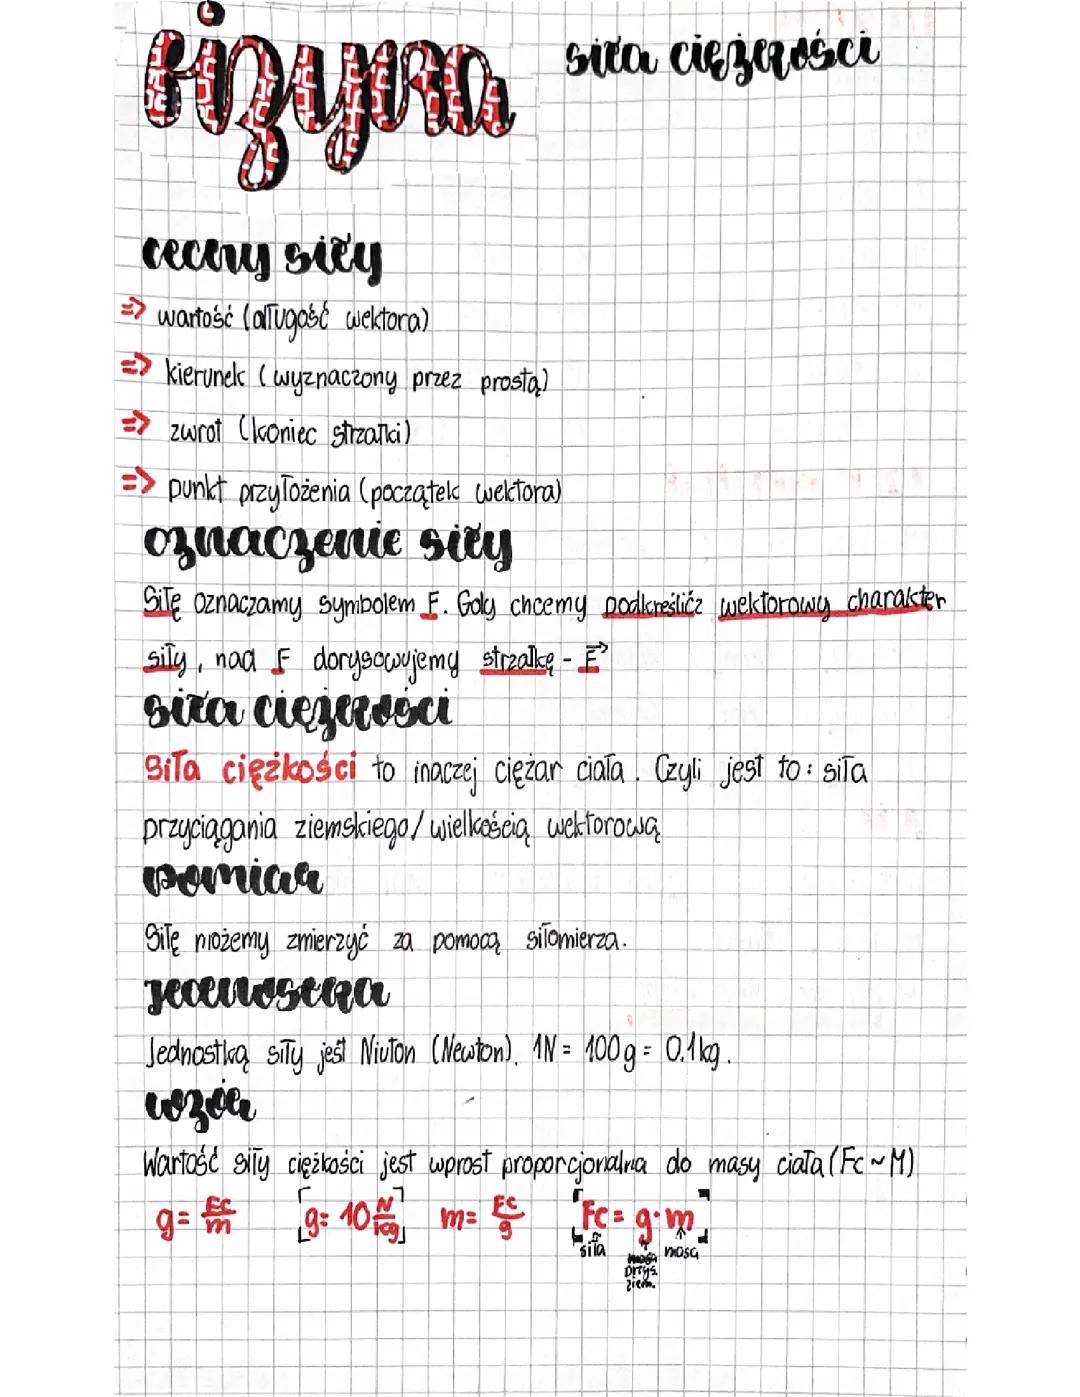 fizyka
siła ciężkości
cechy siły
=> wartość (długość wektora)
=> kierunek (wyznaczony przez prostą)
=> zwrot (koniec strzałki)
=> punkt przyłożenia (początek wektora)
oznaczenie siły
Siłę oznaczamy symbolem F. Gdy chcemy podkreślić wektorowy charakter
siły, nad F dorysowujemy strzałkę - F→
siła ciężkości
Siła ciężkości to inaczej ciężar ciała. Czyli jest to: siła
przyciągania ziemskiego/wielkością wektorową
pomiar
Siłę możemy zmierzyć za pomocą siłomierza.
jednostka
Jednostką siły jest Niuton (Newton). 1N = 100g = 0,1kg.
wzór
Wartość siły ciężkości jest wprost proporcjonalna do masy ciała (Fc ~ M)
g = Fc/m [g = 10 N/kg] m = Fc/g [Fc = g · m]
siła masa
przys.
ziem.